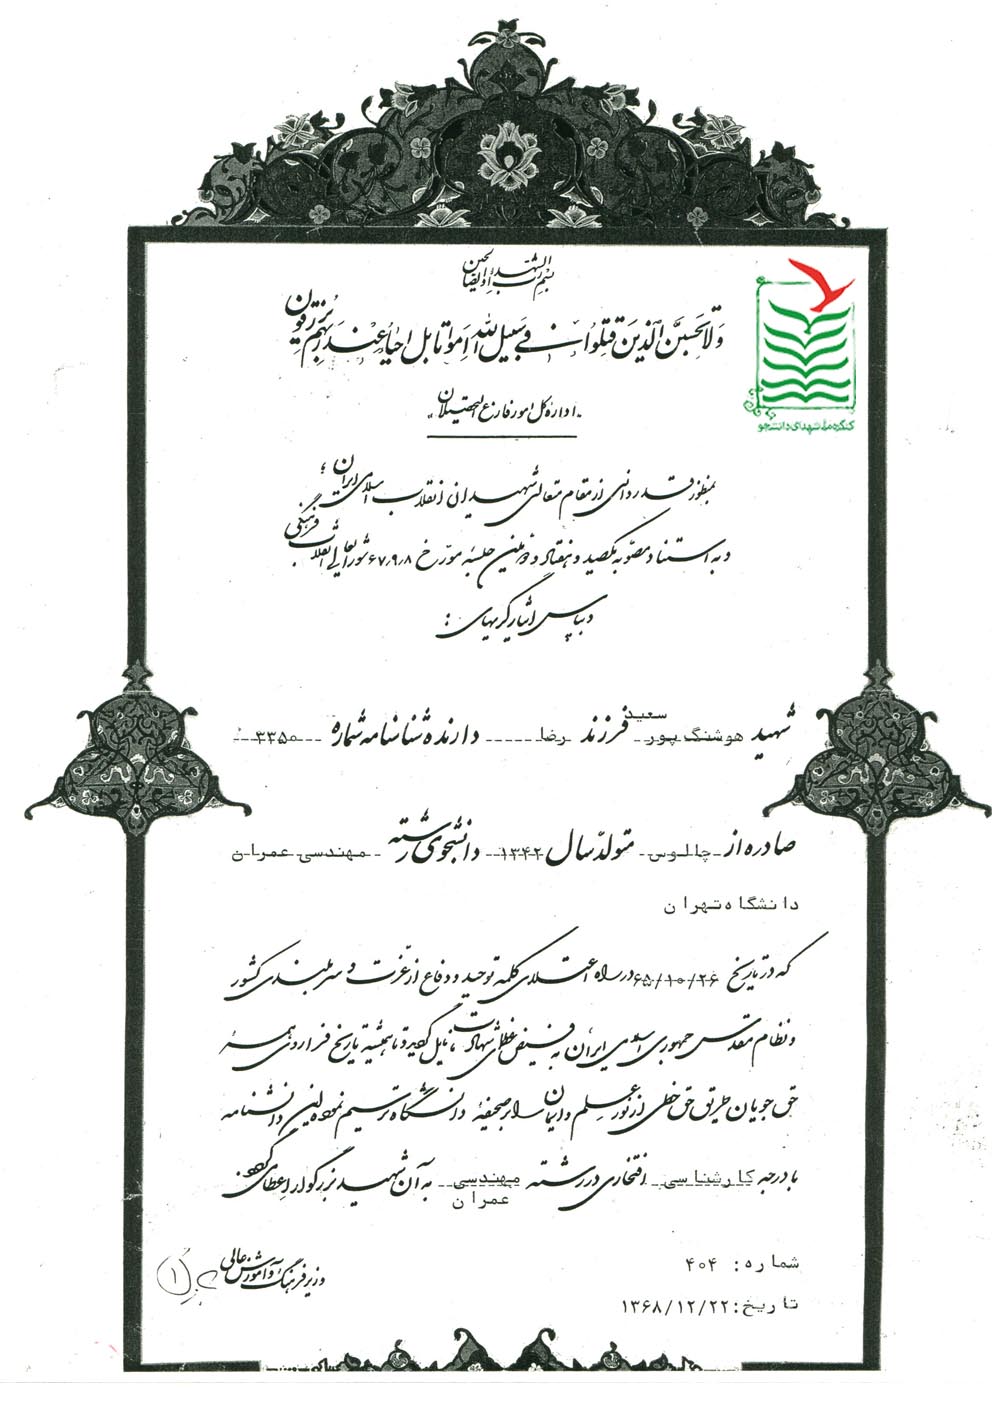 بسم رب الشهداء و الصالحین
ولا تحسبن الذین قتلوا فی سبیل الله امواتا بل احیاء عند ربهم یرزقون
کنگره ملی شهدای دانشجو
«اداره کل امور فارغ التحصیلان»
بمنظور قدردانی از مقام متعالی شهیدان انقلاب اسلامی ایران؛
و به استناد مصوبه یکصد و هفتاد و دومین جلسه مورخ ۶۷٫۹٫۸ شورایعالی انقلاب فرهنگی
و بپاس ایثارگریهای :
شهید هوشنگ پور سعید فرزند رضا دارنده شناسنامه شماره ۳۳۵۰
صادره از چالوس متولد سال ۱۳۴۲ دانشجوی رشته مهندسی عمران
دانشگاه تهران
که در تاریخ ۶۵/۱۰/۲۶ در راه اعتلای کلمه توحید و دفاع از عزت و سربلندی کشور
و نظام مقدس جمهوری اسلامی ایران به فیض عظمای شهادت نایل گردید تا همیشه تاریخ فرا روی همه
حق جویان طریق حق خطی از نور علم و ایمان را بر صحیفه دانشگاه ترسیم نموده این دانشنامه
با درجه کارشناسی افتخاری در رشته مهندسی عمران به آن شهید بزرگوار اعطا میگردد.
شماره: ۴۰۴
تاریخ: ۱۳۶۸/۱۲/۲۲
وزیر فرهنگ و آموزش عالی